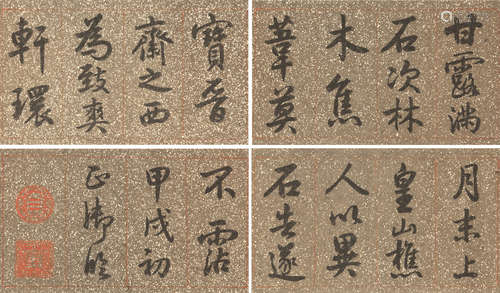 甘露滿
石次林
木焦
葦莫
寶晉
齋之西
為致爽
軒環
不霑
甲戌初
月末上
皇山樵
人以異
石告遂